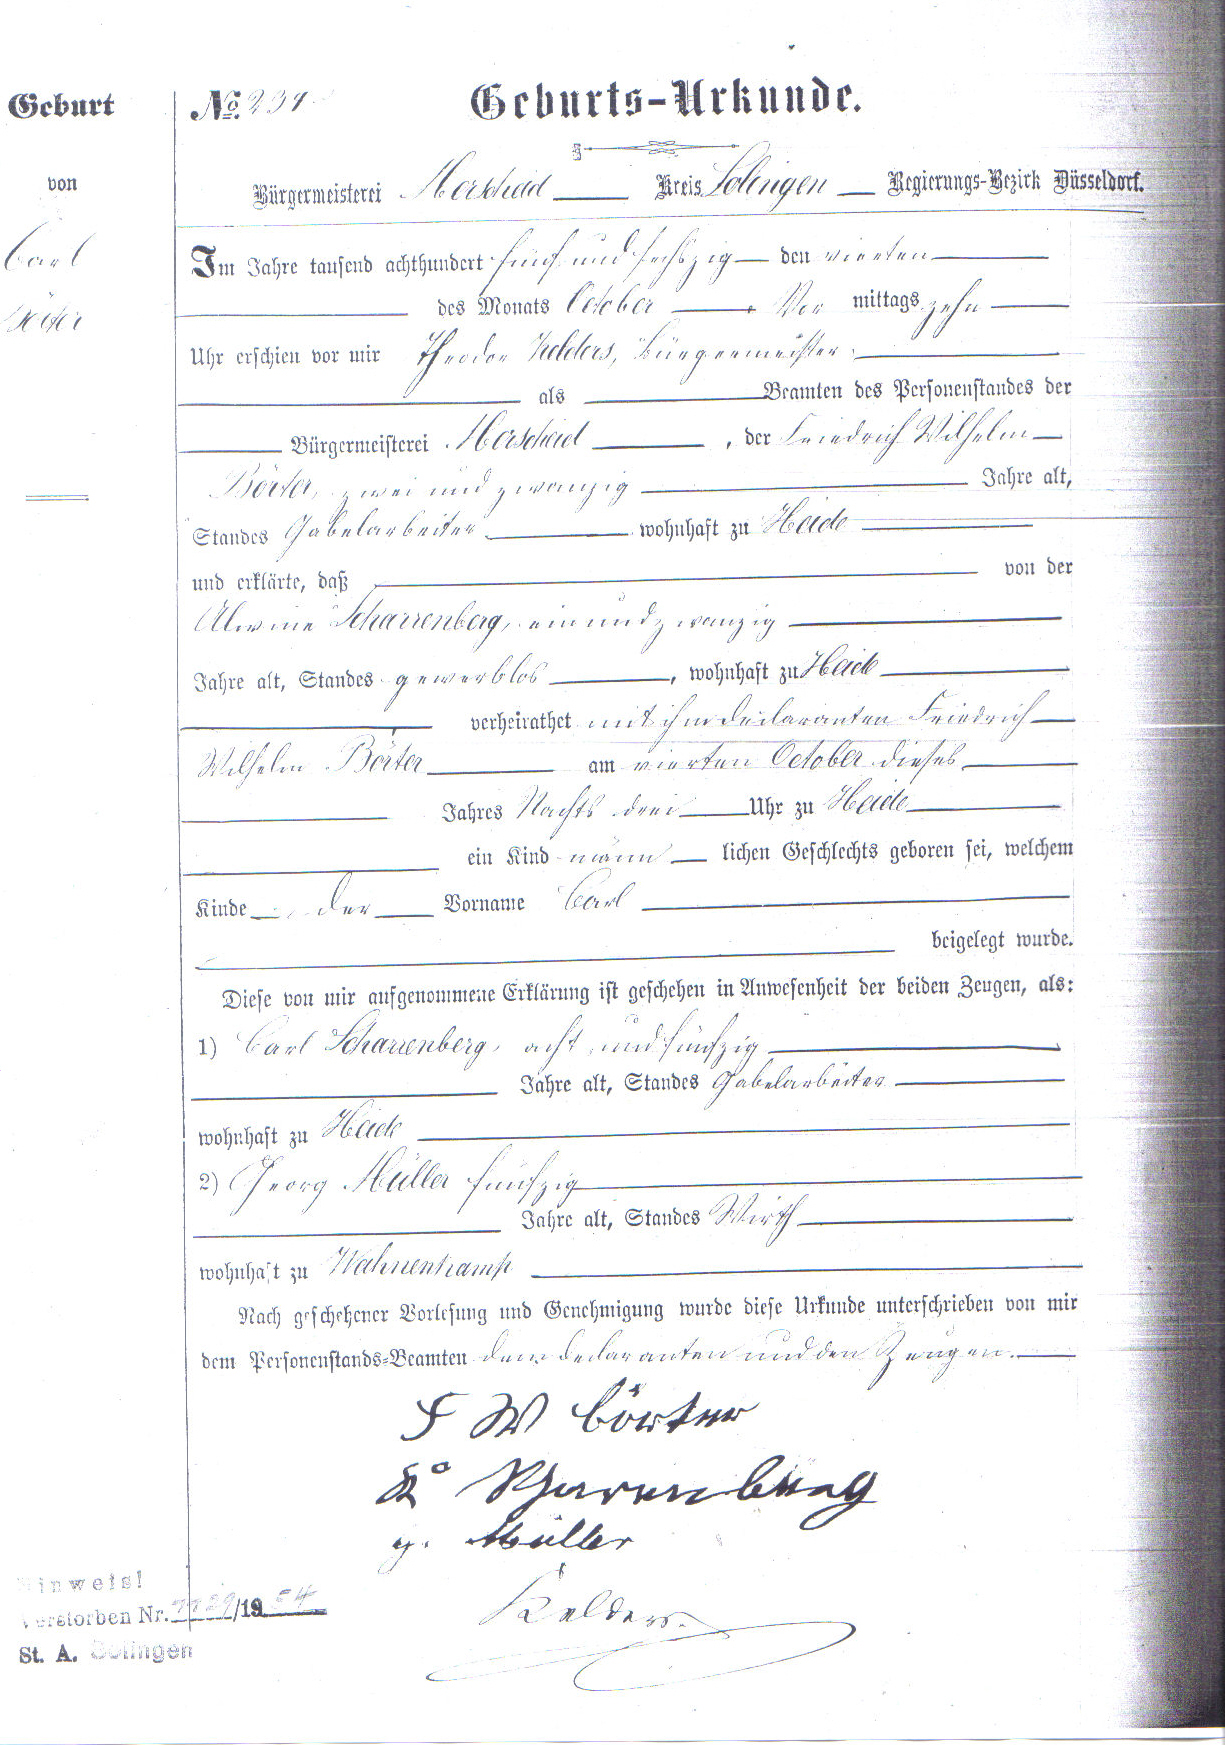 Geburt
von
Carl
Börter
No. 234
Geburts-Urkunde.
Bürgermeisterei Merscheid Kreis Solingen Regierungs-Bezirk Düsseldorf.
Im Jahre tausend achthundert fünf und sechszig den vierten
des Monats October Vor mittags zehn
Uhr erschien vor mir Theodor Kelders, Bürgermeister
als Beamten des Personenstandes der
Bürgermeisterei Merscheid, der Friedrich Wilhelm
Börter, zwei und zwanzig Jahre alt,
Standes Gabelarbeiter wohnhaft zu Heide
und erklärte, daß von der
Alwine Scharrenberg, ein und zwanzig
Jahre alt, Standes gewerblos, wohnhaft zu Heide
verheirathet mit ihm Declaranten Friedrich
Wilhelm Börter am vierten October dieses
Jahres Nachts drei Uhr zu Heide
ein Kind männ lichen Geschlechts geboren sei, welchem
Kinde der Vorname Carl
beigelegt wurde.
Diese von mir aufgenommene Erklärung ist geschehen in Anwesenheit der beiden Zeugen, als:
1) Carl Scharrenberg, acht und fünfzig
Jahre alt, Standes Gabelarbeiter
wohnhaft zu Heide
2) Georg Müller fünfzig
Jahre alt, Standes Wirth
wohnhaft zu Wahnenkamp
Nach geschehener Vorlesung und Genehmigung wurde diese Urkunde unterschrieben von mir
dem Personenstands-Beamten dem Declaranten und den Zeugen.
F W Börter
Scharrenberg
g. Müller
Kelders.
Hinweis!
Verstorben Nr. /1954
St. A. Solingen